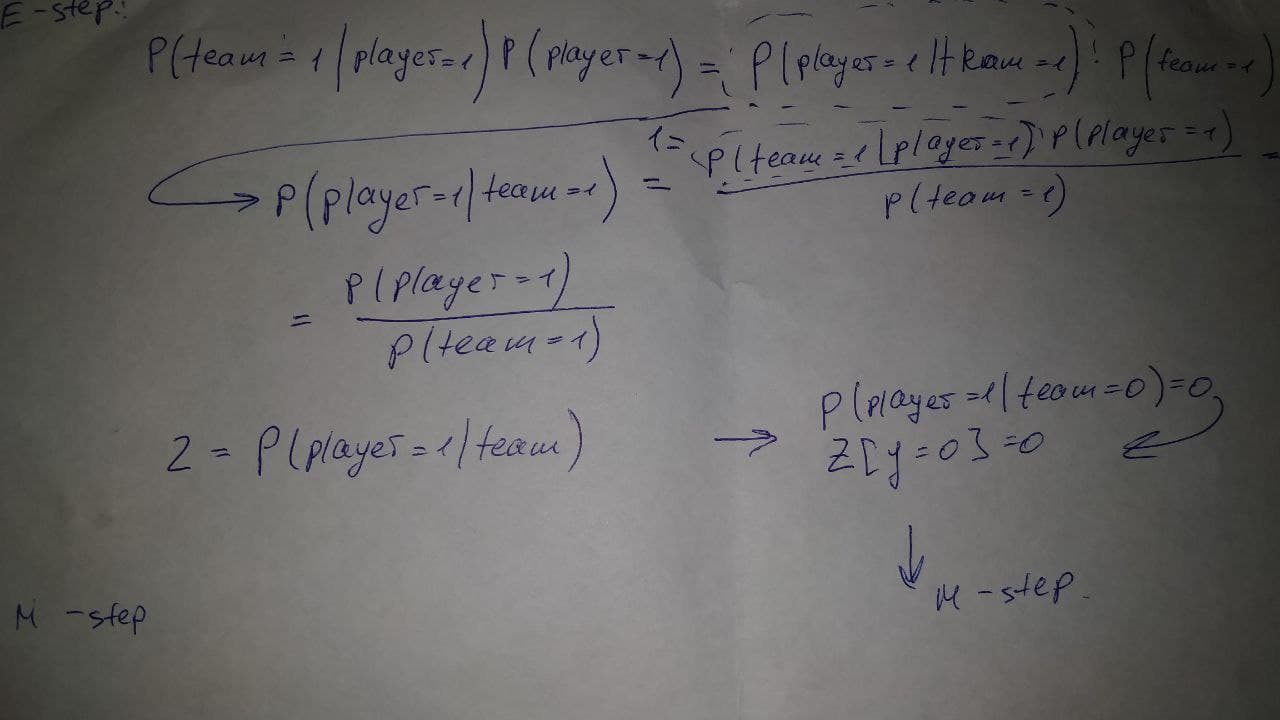 E-step:
P(team=1|player=1)P(player=1) = P(player=1|team=1) · P(team=1)
P(player=1|team=1) = 1= P(team=1|player=1) · P(player=1) / P(team=1) =
= P(player=1) / P(team=1)
P(player=1|team=0)=0
Z = P(player=1|team) → Z[y=0]=0
↓
M-step.
M-step